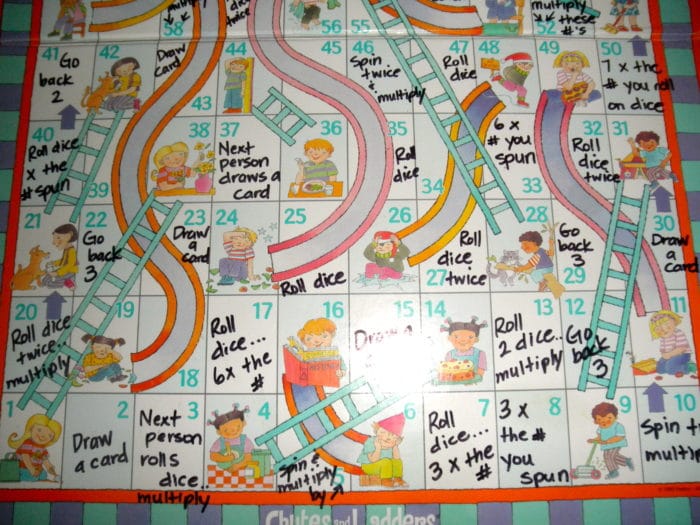 58
multiply
twice
56
55
multiply
these
#'s
52
41 Go
back
2
42
Draw
card
43
44
45
46
Spin
twice
&
multiply
47
Roll
dice
48
49
50
7 x the
# you roll
on dice
40
Roll dice
x the
# spun
39
38
37
Next
person
draws a
card
36
35
Roll
dice
34
6 x
# you
spun
33
32
Roll
dice
twice
31
21
22
Go
back
3
23
Draw
a
card
24
25
Roll dice
26
Roll
dice
27 twice
28
Go
back
3
29
30
Draw
a
card
20
Roll dice
twice..
multiply
19
18
17
Roll
dice...
6x the
#
16
15
Draw a
14
13
Roll
2 dice..
multiply
12
Go
back
3
11
1
2
Draw
a card
3
Next
person
rolls
dice..
multiply
4
Spin &
multiply
by
5
6
7
Roll
dice...
3 x the
#
8
3 x
the #
you
spun
9
10
Spin
Chutes and Ladders